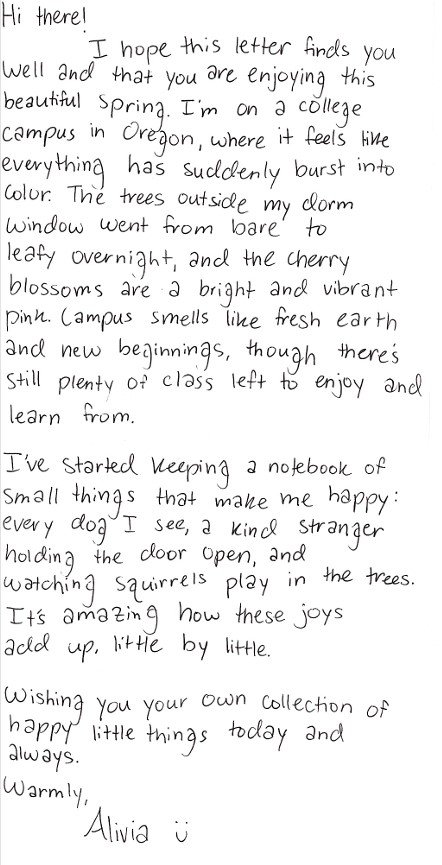 Hi there!
I hope this letter finds you
well and that you are enjoying this
beautiful spring. I'm on a college
campus in Oregon, where it feels like
everything has suddenly burst into
color. The trees outside my dorm
window went from bare to
leafy overnight, and the cherry
blossoms are a bright and vibrant
pink. Campus smells like fresh earth
and new beginnings, though there's
still plenty of class left to enjoy and
learn from.
I've started keeping a notebook of
small things that make me happy:
every dog I see, a kind stranger
holding the door open, and
watching squirrels play in the trees.
It's amazing how these joys
add up, little by little.
Wishing you your own collection of
happy little things today and
always.
Warmly,
Alivia ü